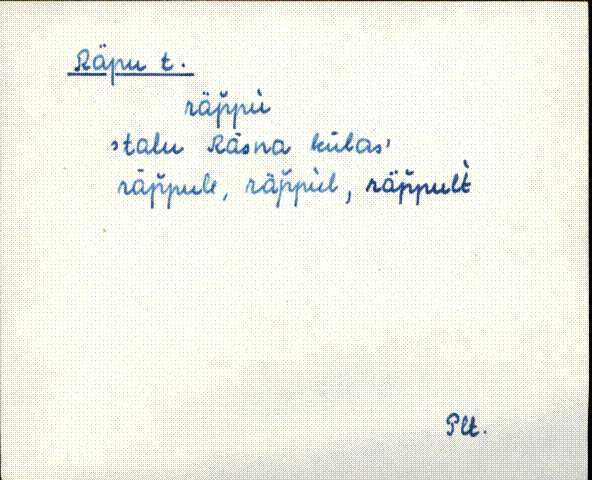 Räpu t.
räp̆pù
'talu Räsna külas'
räp̆pule, räp̆pùl, räp̆pult̀
Plt.